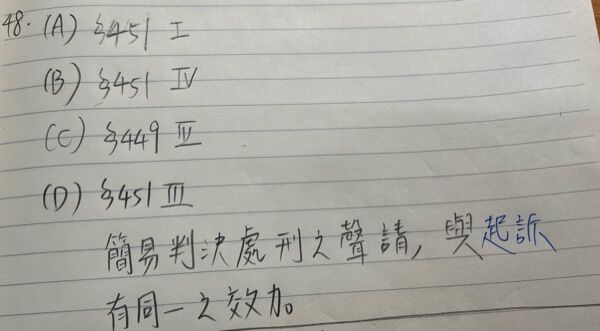 48. (A) §451 I
(B) §451 IV
(C) §449 IV
(D) §451 III
簡易判決處刑之聲請,與起訴
有同一之效力。